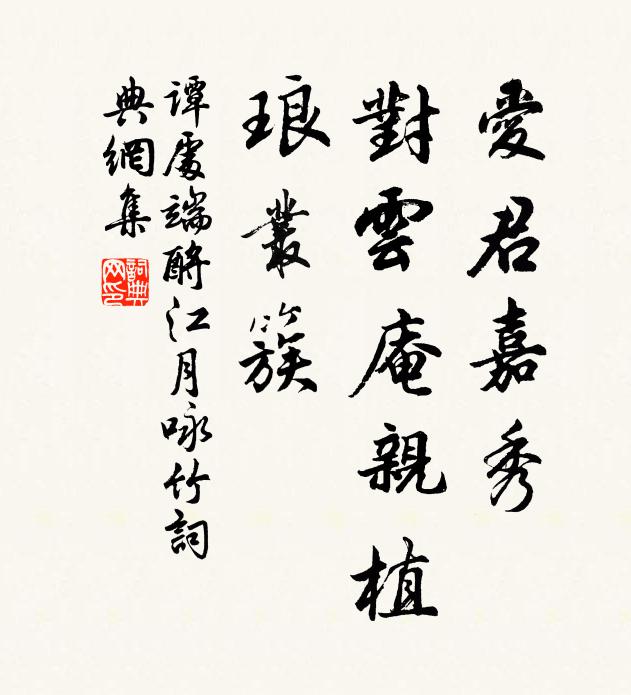 愛君嘉秀
對雲庵親植
琅叢簇
譚處端酹江月咏竹詞
典網集
詞典
网印